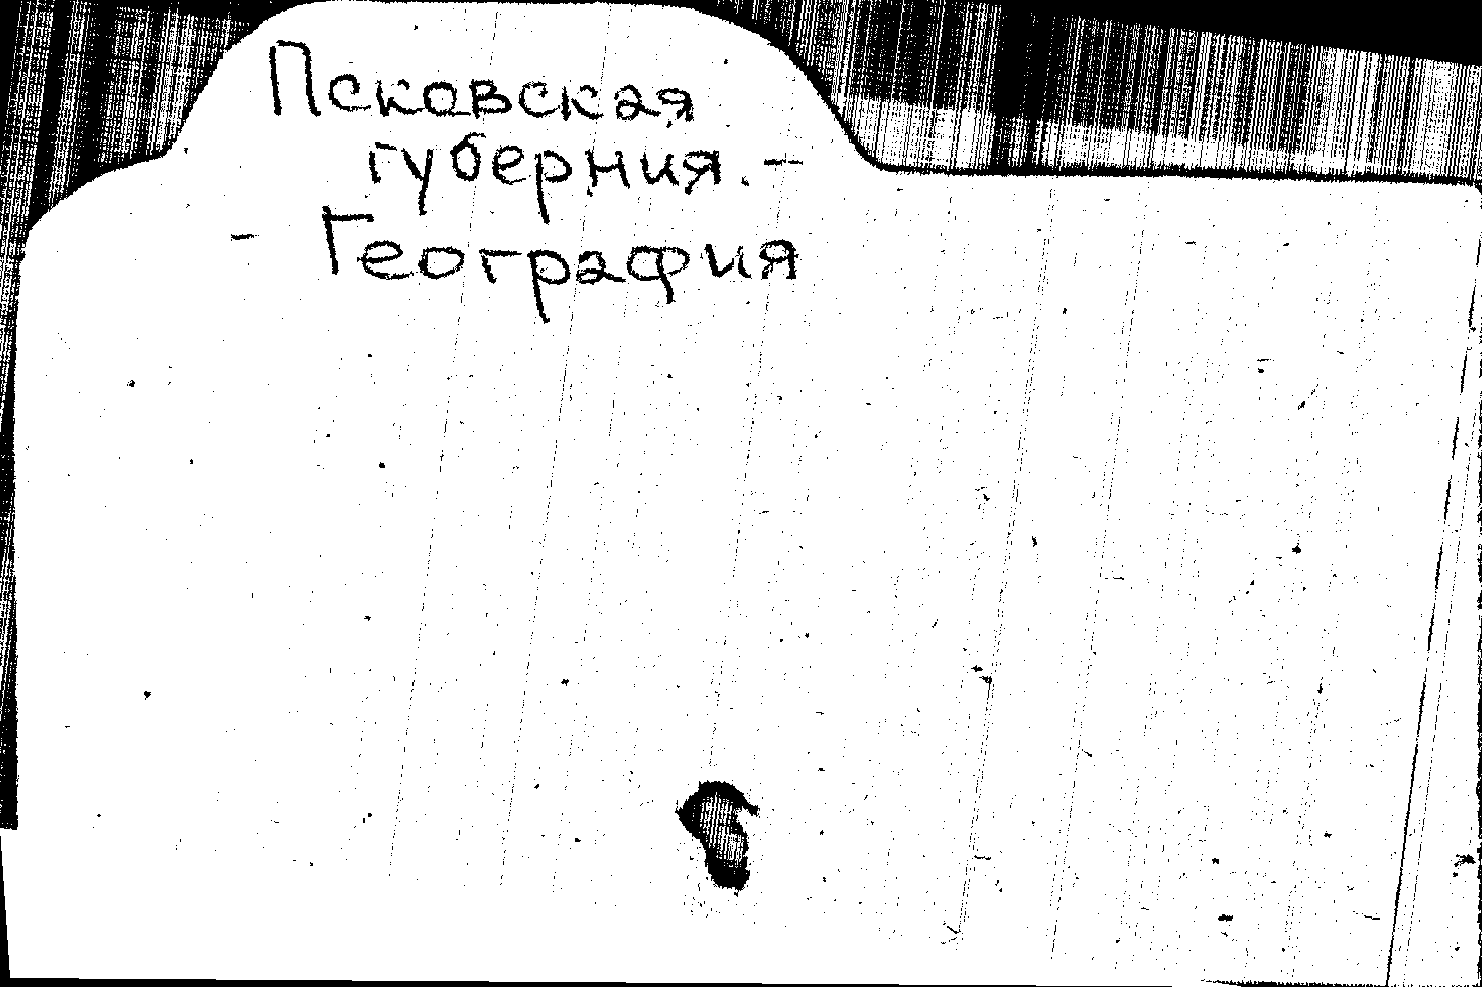 Псковская
губерния. -
- География